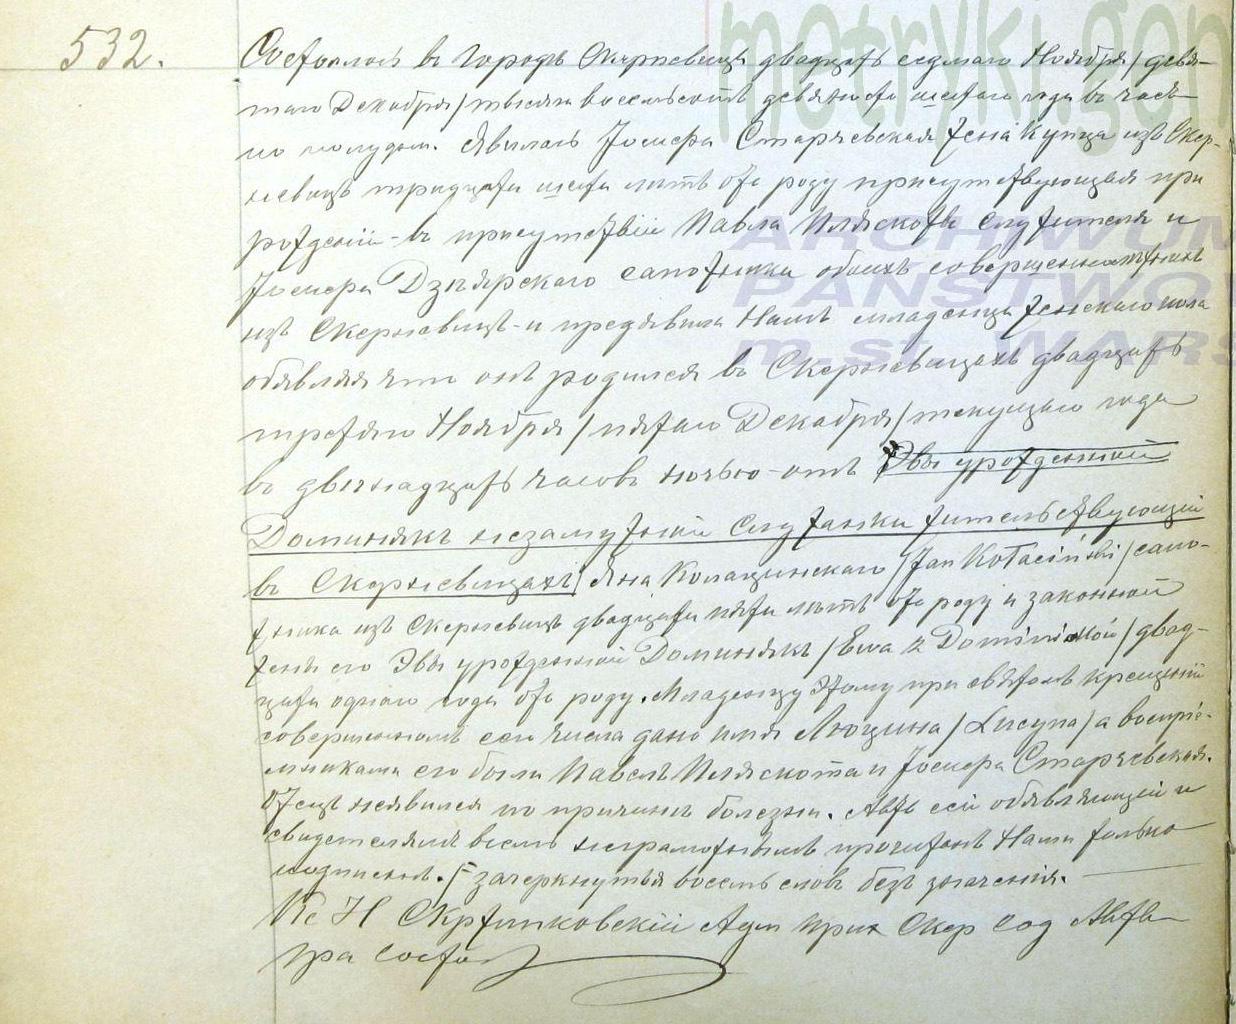 532.
Состоялось въ городѣ Скерневицѣ двадцать седьмаго Ноября / девя-
таго Декабря / тысяча восемьсотъ девяносто шестаго года въ часъ
по полудни. Явилась Іосифа Старчевская жена купца изъ Скер-
невицъ тридцати шести лѣтъ отъ роду присутствующая при
рожденіи - въ присутствіи Павла Плясоты служителя и
Іосифа сапожника обоихъ совершеннолѣтнихъ
изъ Скерневицъ - и предъявила Намъ младенца женскаго пола
объявляя что онъ родился въ Скерневицахъ двадцать
третяго Ноября / пятаго Декабря / текущаго года
въ двѣнадцать часовъ ночью - отъ Эвы урожденной
Доминякъ незамужней служанки жительствующей
въ Скерневицахъ / Яна Колацинскаго / Jan Kołaciński / сапо-
жника изъ Скерневицъ двадцати пяти лѣтъ отъ роду и законной
жены его Эвы урожденной Доминякъ / Ewa z / двад-
цати одного года отъ роду. Младенцу этому при святомъ крещеніи
совершенномъ сего числа дано имя Люцина / Lucyna / а воспріе-
мниками его были Павелъ и Іосифа Старчевская.
Отецъ неявился по причинѣ болезни. Актъ сей объявляющей и
свидетелямъ всемъ неграмотнымъ прочитанъ Нами только
подписанъ. / зачеркнутыя восемь словъ безъ значенія.
Кс Н Адм прих Скер Сод Акты
гра Сост
metryki.gen
ARCHIWUM
PAŃSTWO
m.st. WARS